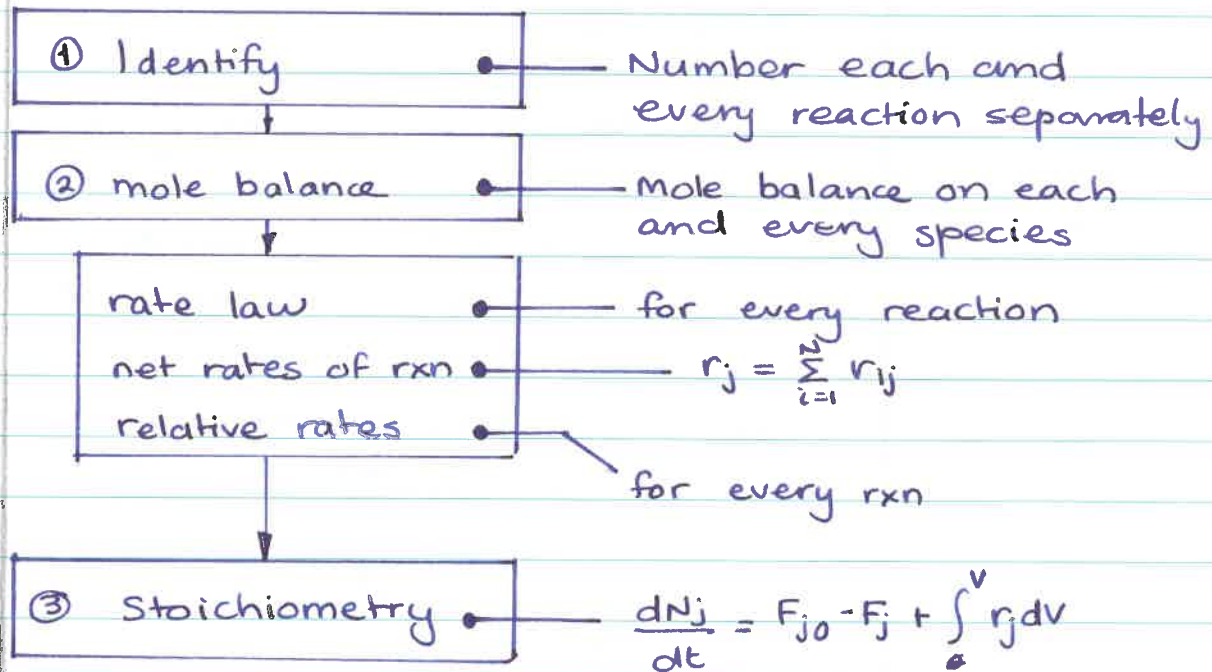 ① Identify
Number each and
every reaction separately
② mole balance
Mole balance on each
and every species
rate law
for every reaction
net rates of rxn
rj = Σ_{i=1}^{N} rij
relative rates
for every rxn
③ Stoichiometry
dNj/dt = Fj0 - Fj + ∫_0^V rj dV